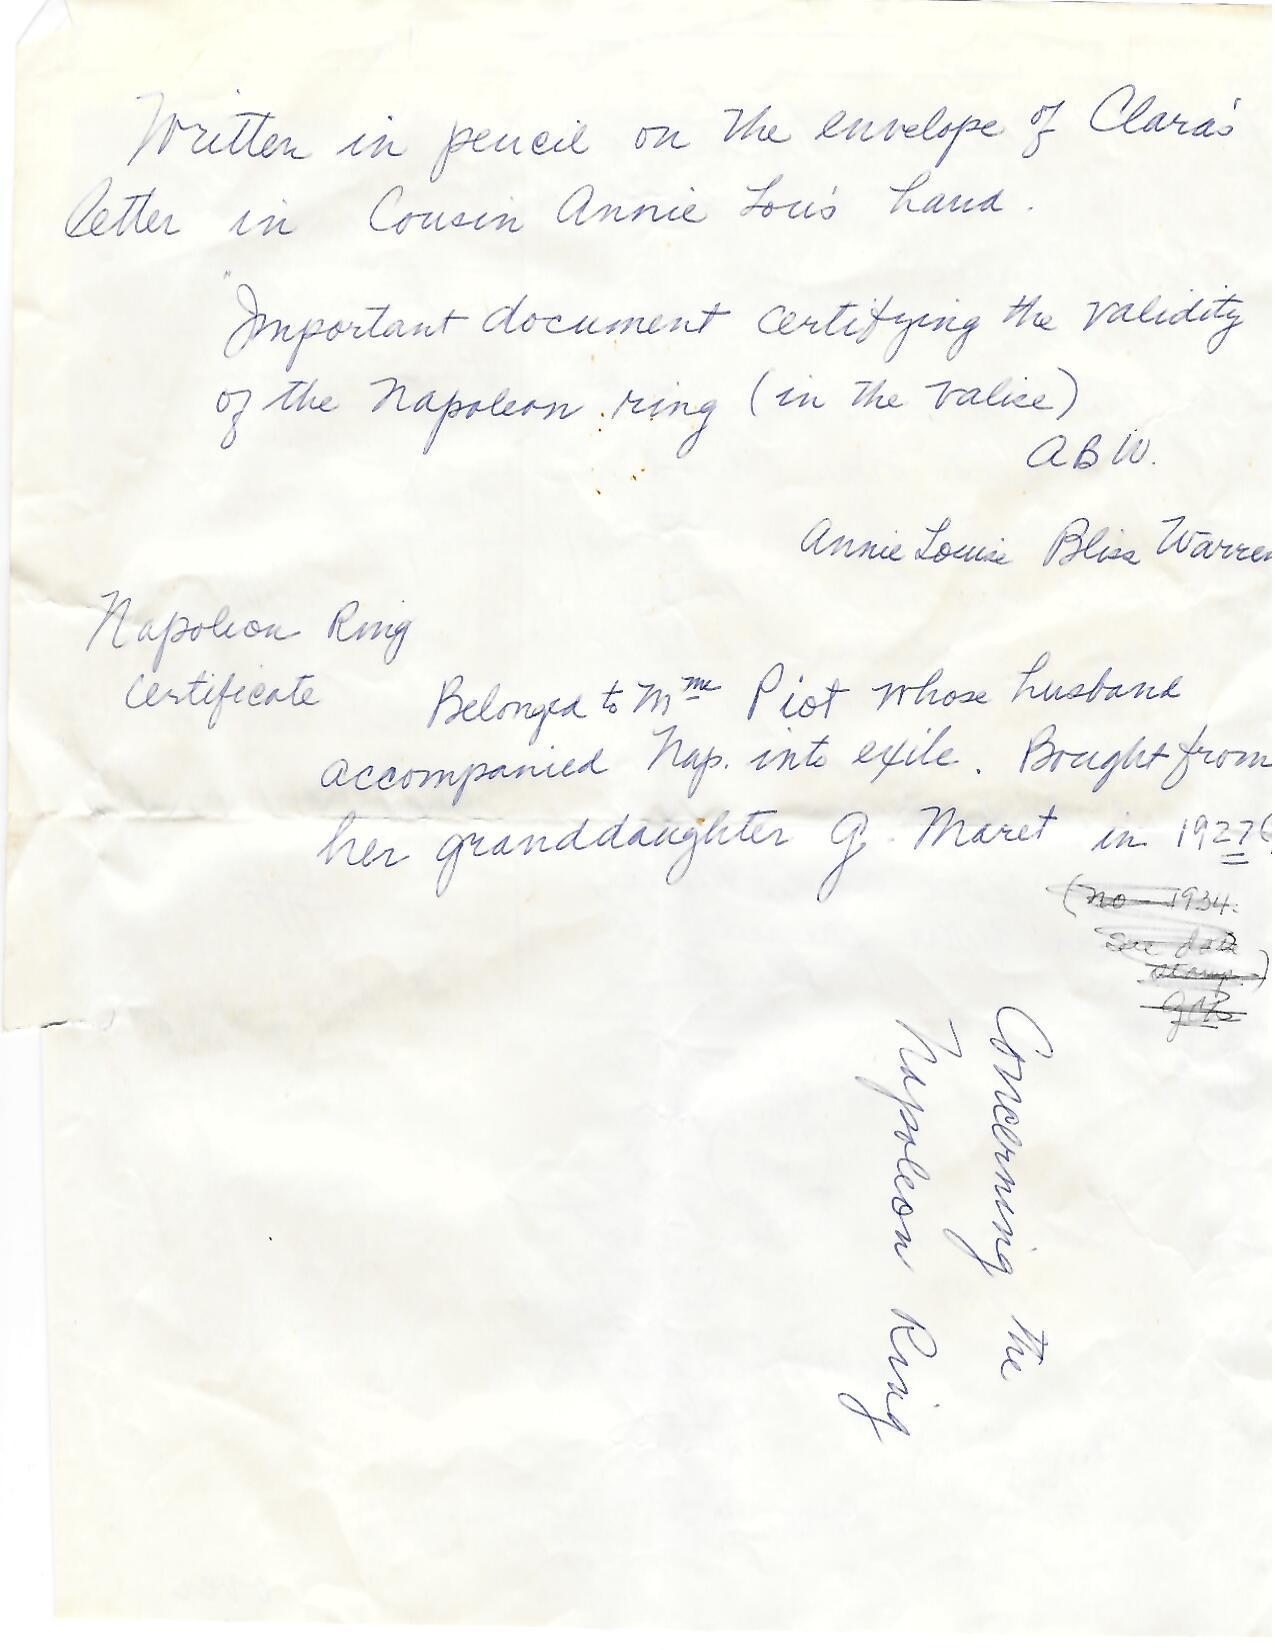 Written in pencil on the envelope of Clara's
letter in Cousin Annie Lou's hand.
"Important document certifying the validity
of the Napoleon ring (in the valise)
ABW.
Annie Louise Bliss Warren
Napoleon Ring
Certificate
Belonged to Mme Piot whose husband
accompanied Nap. into exile. Bought from
her granddaughter G. Maret in 1927
(no - 1934.
see date
stamp.)
Concerning the
Napoleon Ring